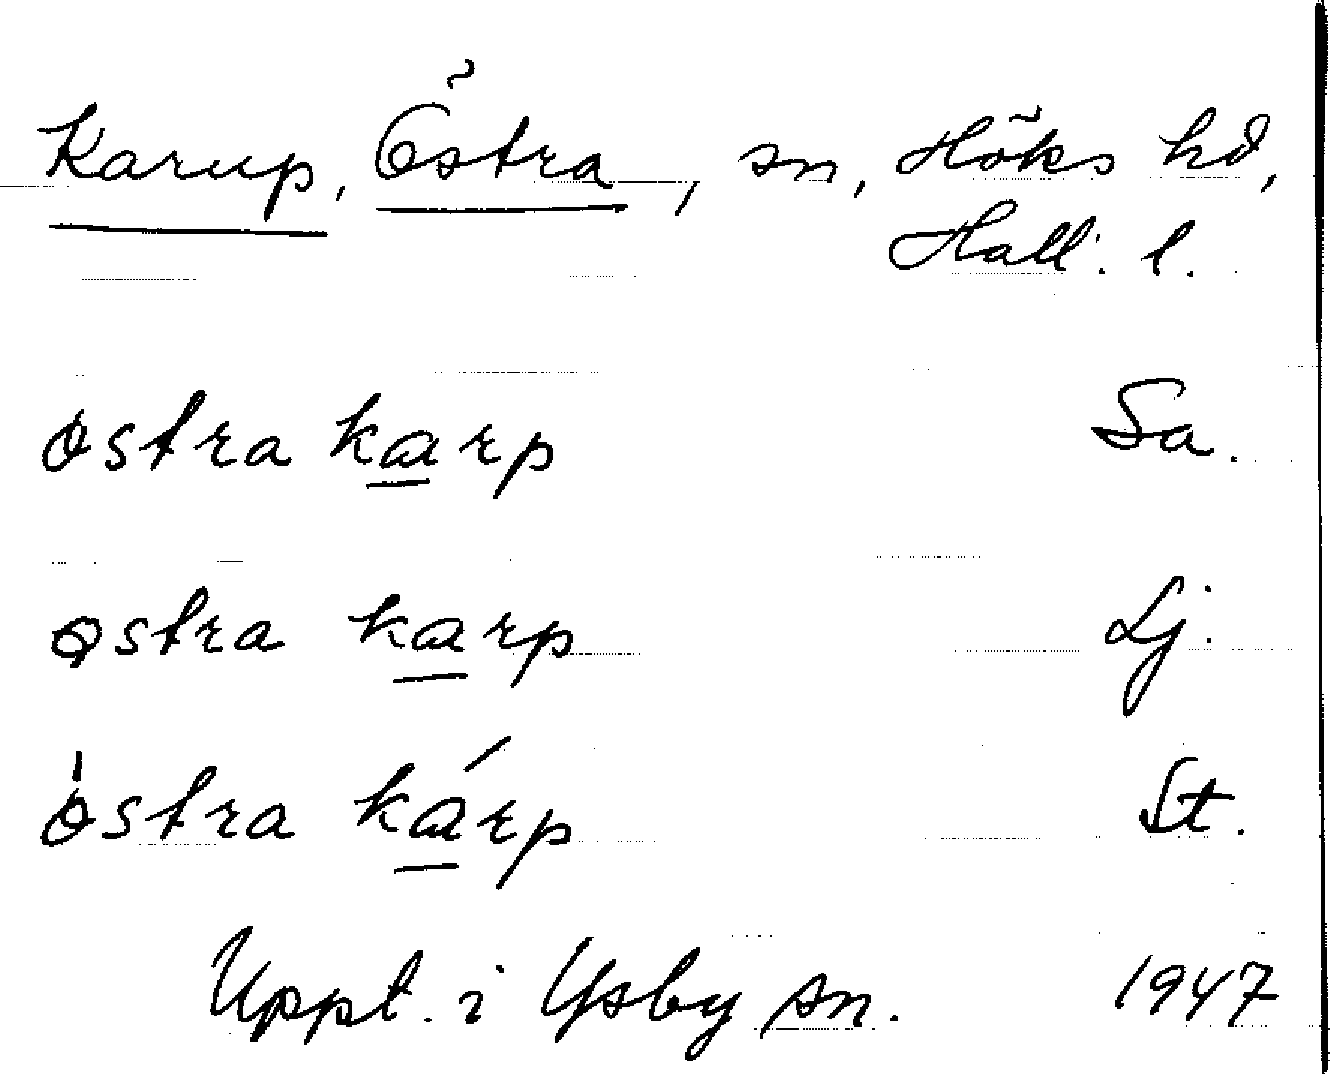 Karup, Östra, sn, Höks hd,
Hall. l.
østra karp Sa.
østra karp Lj.
østra kárp St.
Uppt. i Ysby sn. 1947